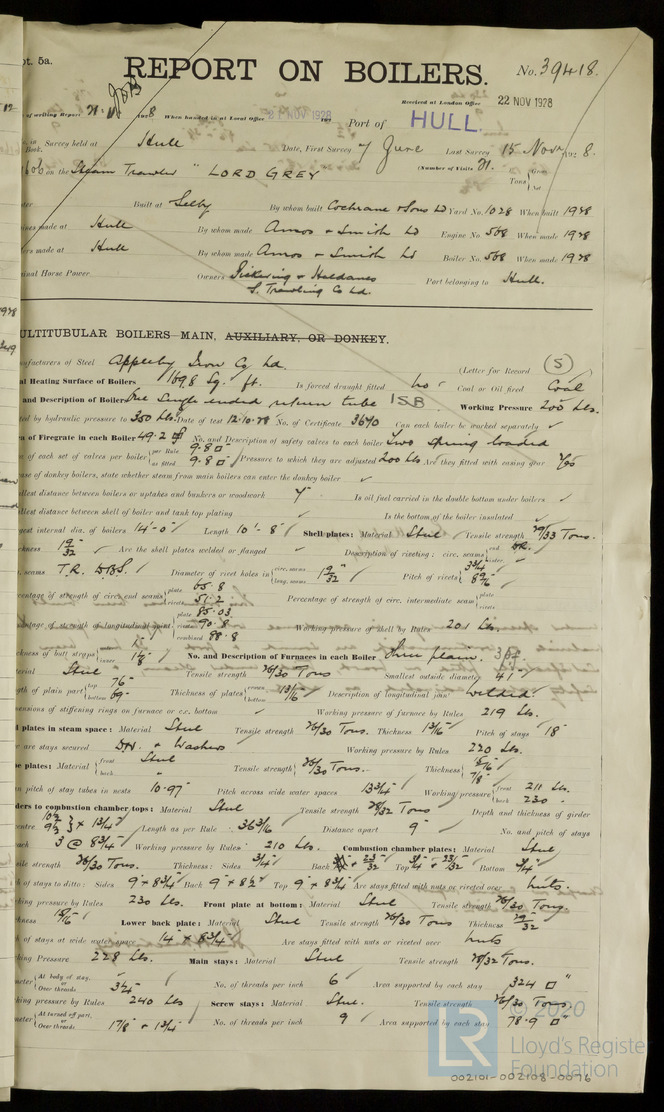 pt. 5a.
REPORT ON BOILERS.
No. 39418.
Received at London Office 22 NOV 1928
of writing Report 21. 11 1928 When handed in at Local Office 21 NOV 1928 Port of HULL.
in Survey held at Hull Date, First Survey 7 June Last Survey 15 Novr 1928.
on the Steam Trawler "LORD GREY" (Number of Visits 21. Gross Tons Net
Built at Selby By whom built Cochrane & Sons Ld Yard No. 1028 When built 1928
ines made at Hull By whom made Amos & Smith Ld Engine No. 568 When made 1928
ers made at Hull By whom made Amos & Smith Ld Boiler No. 568 When made 1928
inal Horse Power Owners Pickering & Haldanes S. Trawling Co Ld. Port belonging to Hull.
ULTITUBULAR BOILERS MAIN, AUXILIARY, OR DONKEY.
nufacturers of Steel Appleby Iron Co Ld. (Letter for Record (S)
al Heating Surface of Boilers 1698 Sq. ft. Is forced draught fitted no Coal or Oil fired Coal
and Description of Boilers One Single ended return tube 1SB Working Pressure 200 Lbs.
ted by hydraulic pressure to 350 Lbs. Date of test 12.10.28 No. of Certificate 3690 Can each boiler be worked separately
a of Firegrate in each Boiler 49.2 No. and Description of safety valves to each boiler Two spring loaded
a of each set of valves per boiler per Rule 9.80 as fitted 9.80 Pressure to which they are adjusted 200 Lbs Are they fitted with easing gear Yes
ase of donkey boilers, state whether steam from main boilers can enter the donkey boiler
llest distance between boilers or uptakes and bunkers or woodwork Is oil fuel carried in the double bottom under boilers
llest distance between shell of boiler and tank top plating Is the bottom of the boiler insulated
gest internal dia. of boilers 14'-0" Length 10'-8" Shell plates: Material Steel Tensile strength 29/33 Tons.
ckness 19/32 Are the shell plates welded or flanged Description of riveting: circ. seams end DR. inter.
. seams T.R. DBS. Diameter of rivet holes in circ. seams long. seams 19/32" Pitch of rivets 3 3/4
centage of strength of circ end seams plate 65.8 rivets 51.2 Percentage of strength of circ. intermediate seam plate rivets
centage of strength of longitudinal joint plate 85.03 rivets 90.8 combined 88.8 Working pressure of shell by Rules 201 Lbs.
ckness of butt straps outer inner No. and Description of Furnaces in each Boiler Three plain. 3 pf.
terial Steel Tensile strength 26/30 Tons Smallest outside diameter 41"
gth of plain part top 76" bottom 69" Thickness of plates crown bottom 13/16" Description of longitudinal joint welded.
ensions of stiffening rings on furnace or c.c. bottom Working pressure of furnace by Rules 219 Lbs.
d plates in steam space: Material Steel Tensile strength 26/30 Tons. Thickness 13/16 Pitch of stays 18
v are stays secured D.N. & Washers Working pressure by Rules 220 Lbs.
be plates: Material front back Steel Tensile strength 26/30 Tons. Thickness 7/8"
n pitch of stay tubes in nests 10.97 Pitch across wide water spaces 13 3/4" Working pressure front 211 Lbs. back 230
ders to combustion chamber tops: Material Steel Tensile strength 28/32 Tons. Depth and thickness of girder
entre × 1 3/4" Length as per Rule 36 3/16 Distance apart 9" No. and pitch of stays
each 3 @ 8 3/4" Working pressure by Rules 210 Lbs. Combustion chamber plates: Material Steel
sile strength 26/30 Tons. Thickness: Sides 3/4" Back 23/32 Top 23/32 Bottom 3/4"
h of stays to ditto: Sides 9" × 8 3/4" Back 9" × 8 1/2" Top 9" × 8 3/4" Are stays fitted with nuts or riveted over nuts.
king pressure by Rules 230 Lbs. Front plate at bottom: Material Steel Tensile strength 26/30 Tons.
kness 15/16" Lower back plate: Material Steel Tensile strength 26/30 Tons Thickness 29/32
h of stays at wide water space 14" × 8 3/4" Are stays fitted with nuts or riveted over nuts
king Pressure 228 Lbs. Main stays: Material Steel Tensile strength 28/32 Tons.
meter At body of stay, or Over threads 3 1/4" No. of threads per inch 6 Area supported by each stay 324 □"
king pressure by Rules 240 Lbs Screw stays: Material Steel. Tensile strength 26/30 Tons
meter At turned off part, or Over threads 1 7/8" & 1 3/4" No. of threads per inch 9 Area supported by each stay 78.9 □"
© 2020
LR
Lloyd's Register
Foundation
002101-002108-0096